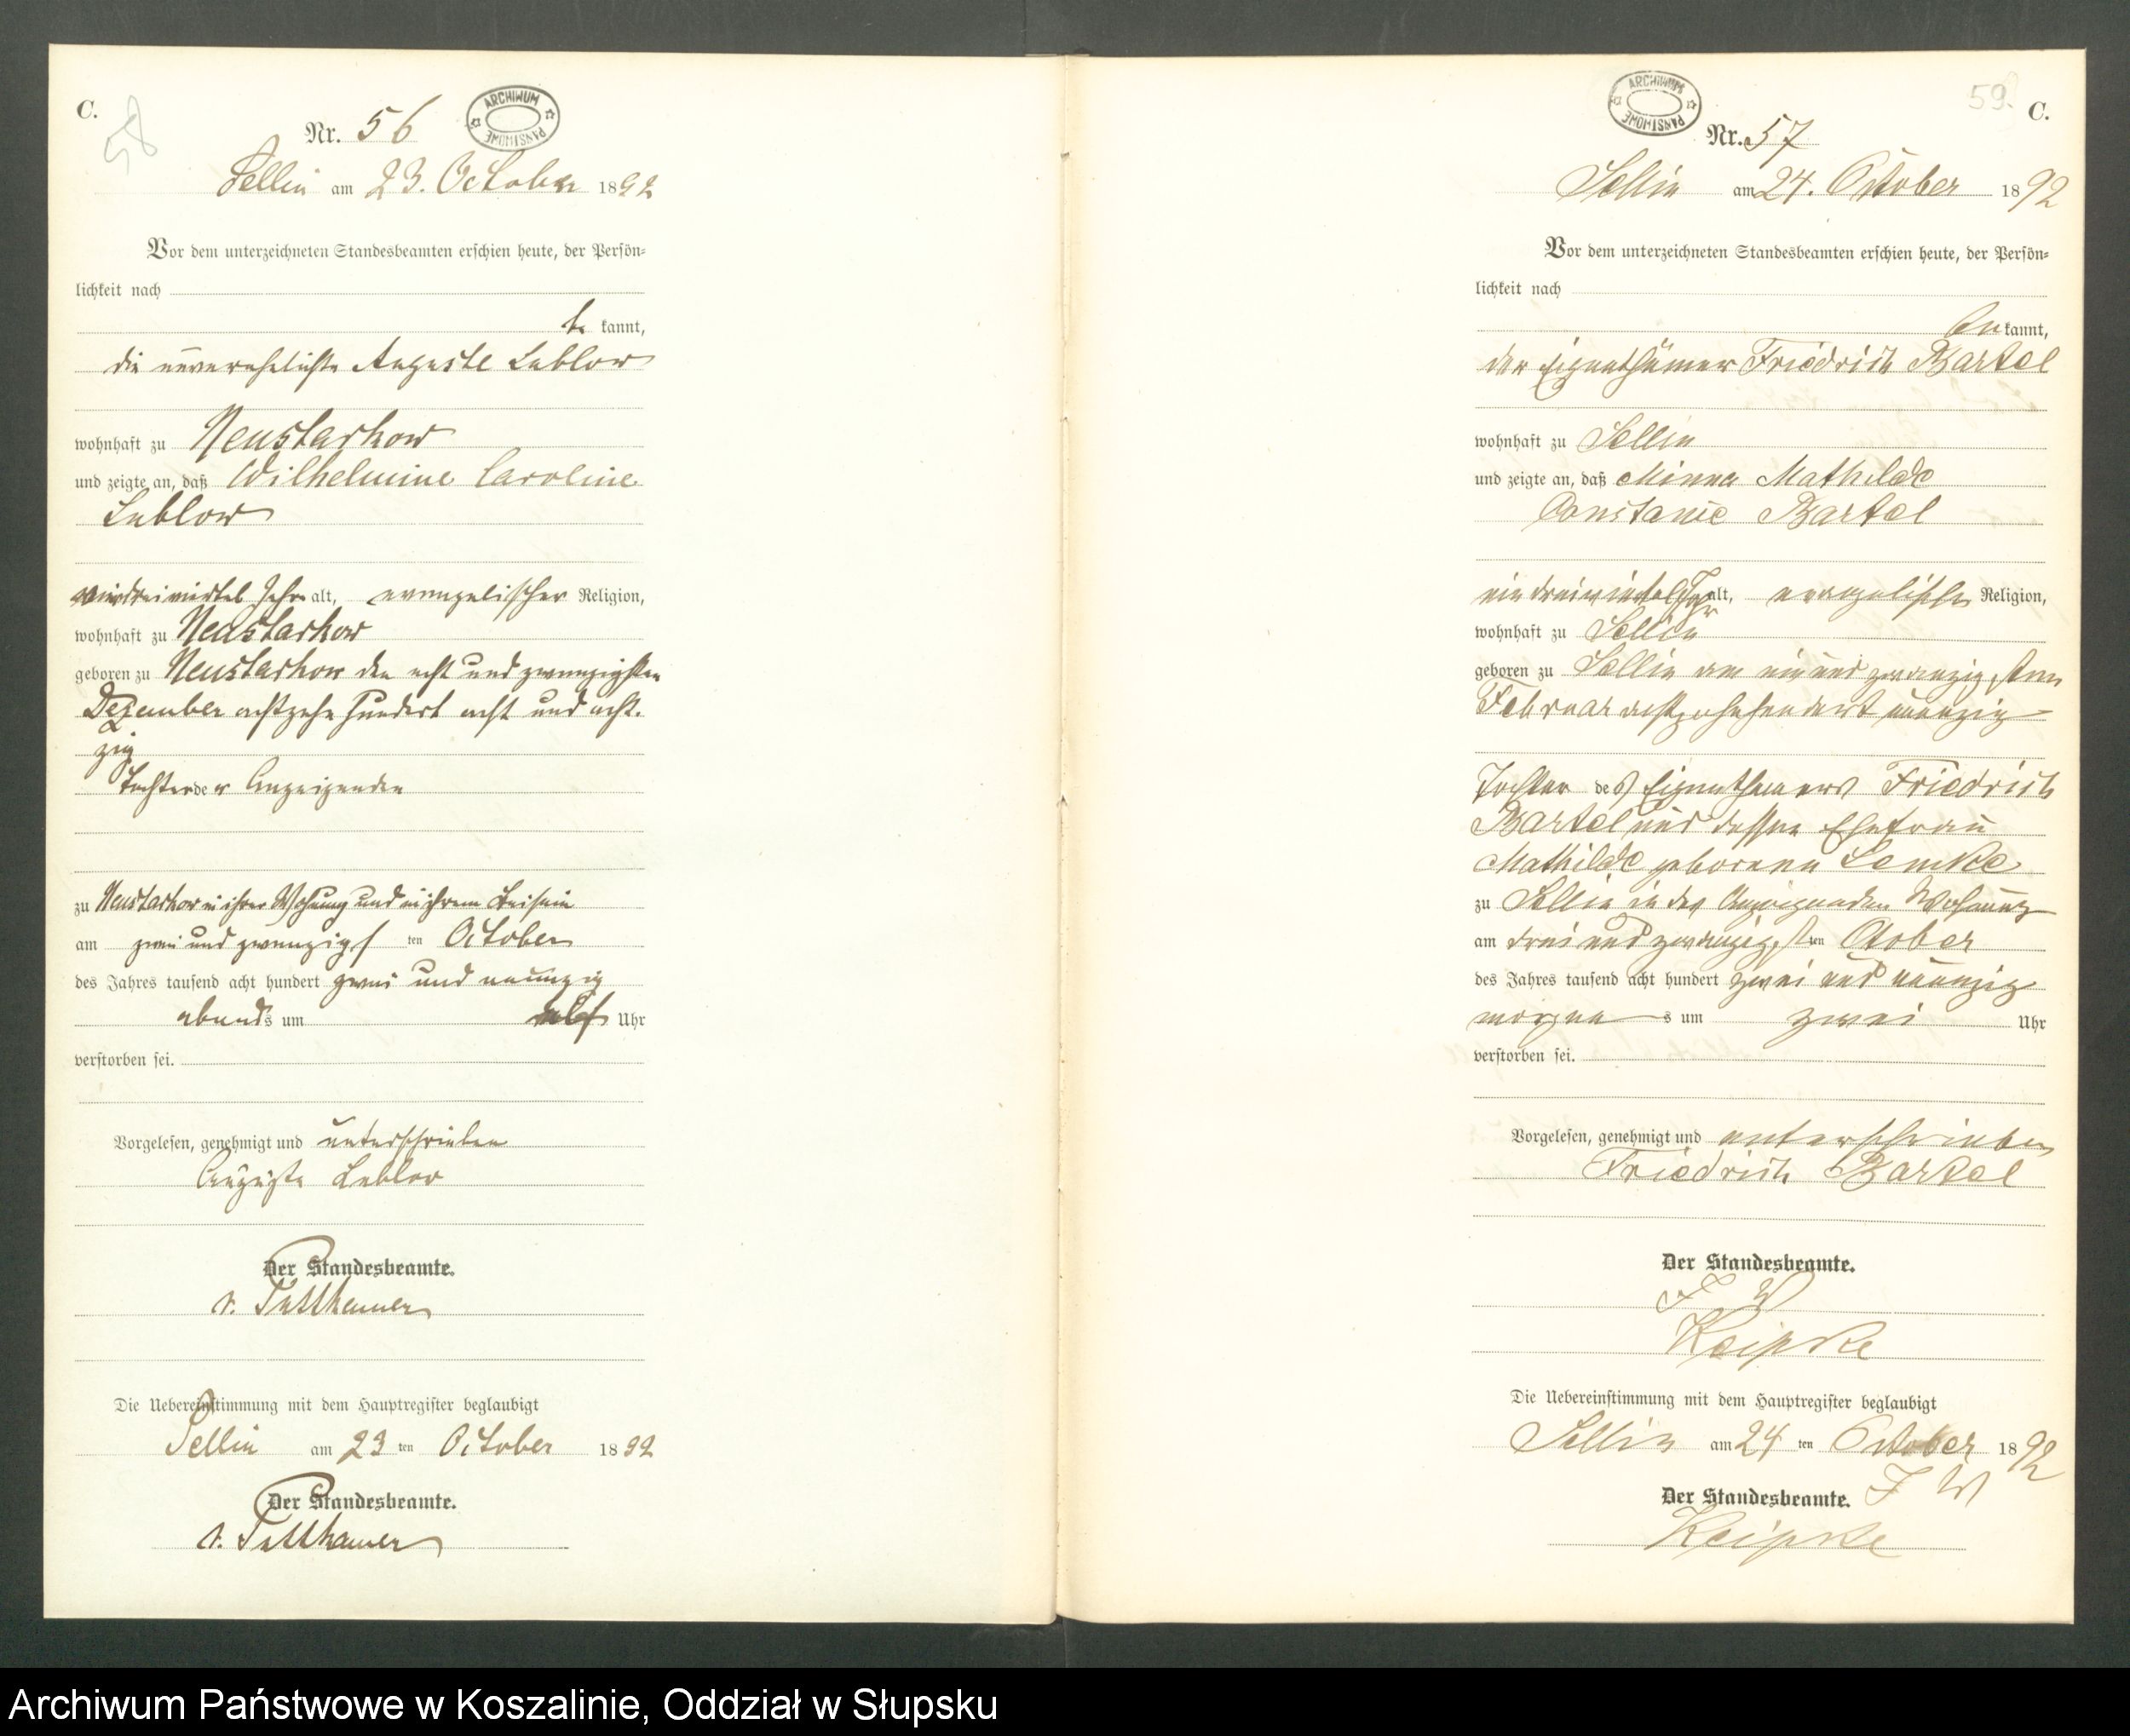 C.
58
Nr. 56
ARCHIWUM PAŃSTWOWE
Sellin am 23. October 1892
Vor dem unterzeichneten Standesbeamten erschien heute, der Persön-
lichkeit nach
be kannt,
die unverehelichte Auguste Lublow
wohnhaft zu Neustarkow
und zeigte an, daß Wilhelmine Caroline
Lublow
dreiviertel Jahre alt, evangelischer Religion,
wohnhaft zu Neustarkow
geboren zu Neustarkow den acht und zwanzigsten
Dezember achtzehn hundert acht und acht-
zig
Tochter der Anzeigenden
zu Neustarkow in ihrer Wohnung und in ihrem Beisein
am zwei und zwanzigs ten October
des Jahres tausend acht hundert zwei und neunzig
abends um elf Uhr
verstorben sei.
Vorgelesen, genehmigt und unterschrieben
Auguste Lublow
Der Standesbeamte.
v. Puttkamer
Die Uebereinstimmung mit dem Hauptregister beglaubigt
Sellin am 23 ten October 1892
Der Standesbeamte.
v. Puttkamer
59.
C.
ARCHIWUM PAŃSTWOWE
Nr. 57
Sellin am 24. October 1892
Vor dem unterzeichneten Standesbeamten erschien heute, der Persön-
lichkeit nach
be kannt,
der Eigenthümer Friedrich Bartel
wohnhaft zu Sellin
und zeigte an, daß Minna Mathilde
Constanie Bartel
ein dreiviertel Jahr alt, evangelischer Religion,
wohnhaft zu Sellin
geboren zu Sellin am ein und zwanzigsten
Februar achtzehnhundert neunzig
Tochter des Eigenthümers Friedrich
Bartel und dessen Ehefrau
Mathilde geborenen Lemke
zu Sellin in des Anzeigenden Wohnung
am drei und zwanzigst ten Otober
des Jahres tausend acht hundert zwei und neunzig
morgen s um zwei Uhr
verstorben sei.
Vorgelesen, genehmigt und unterschrieben
Friedrich Bartel
Der Standesbeamte.
F W
Keipke
Die Uebereinstimmung mit dem Hauptregister beglaubigt
Sellin am 24 ten October 1892
Der Standesbeamte. F W
Keipke
Archiwum Państwowe w Koszalinie, Oddział w Słupsku